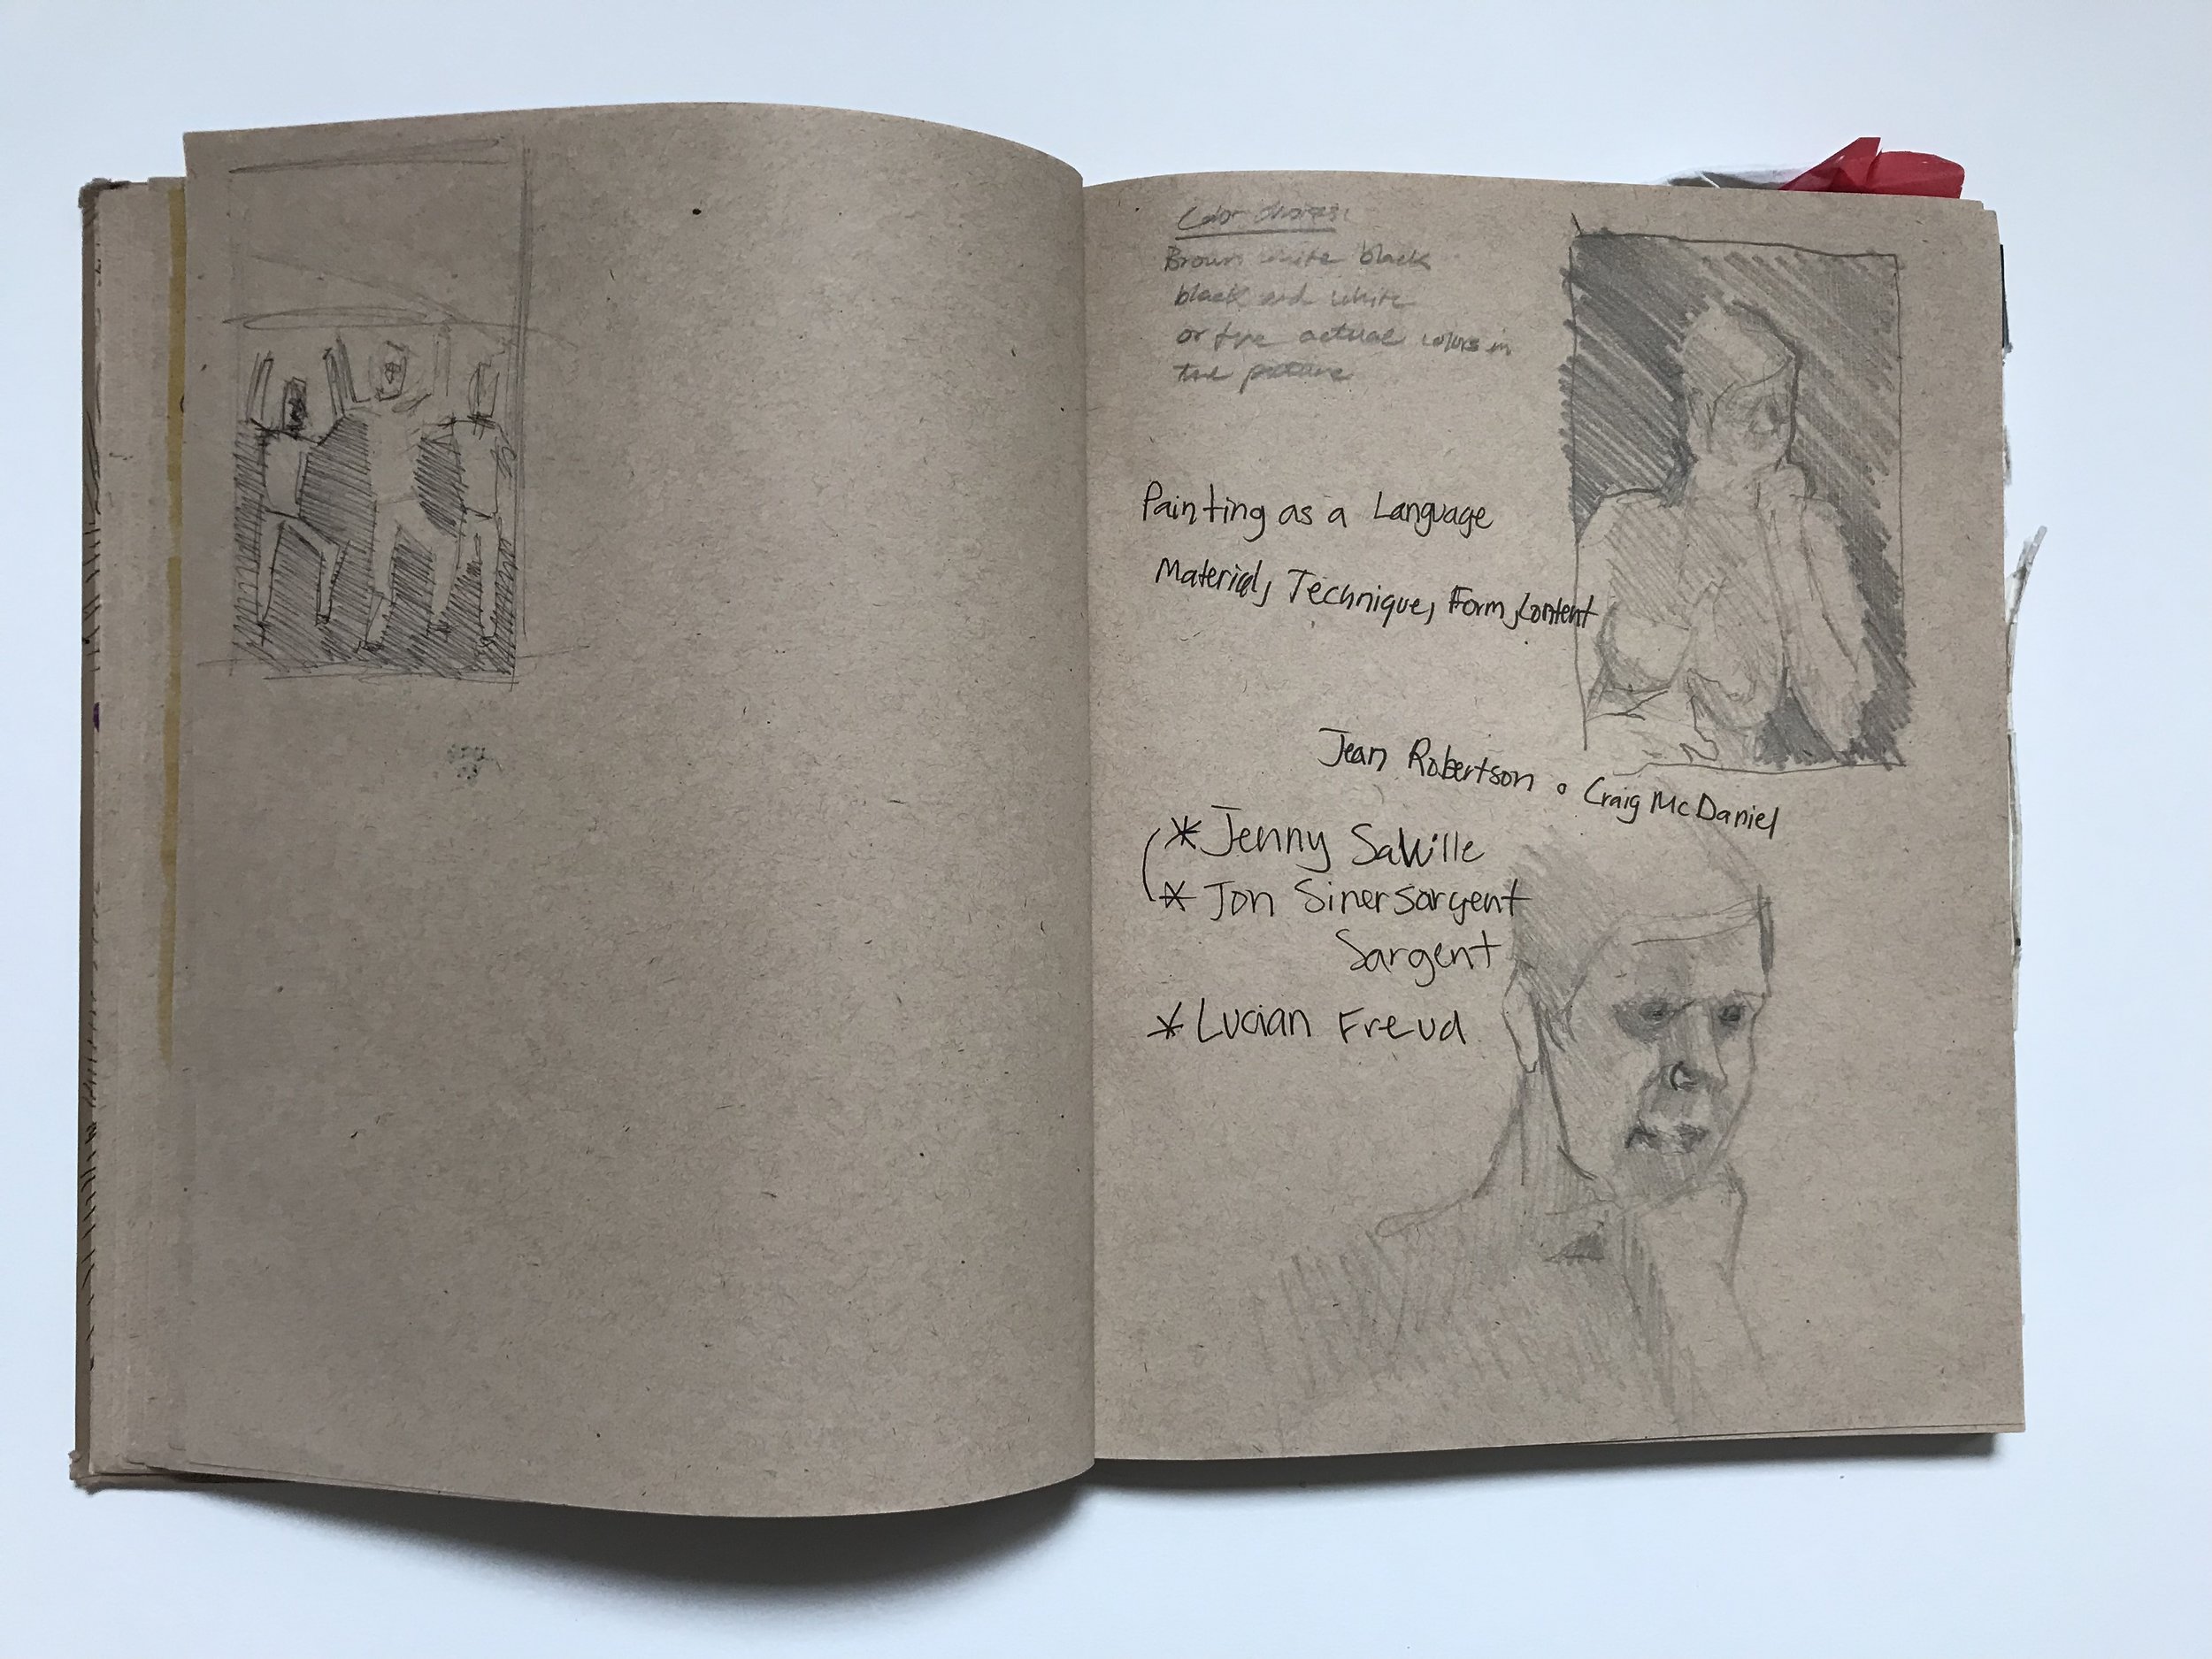 Color choices:
Brown white black
black and white
or the actual colors in
the picture
Painting as a Language
Material, Technique, Form, Content
Jean Robertson • Craig McDaniel
* Jenny Saville
* Jon Sinersargent
Sargent
* Lucian Freud